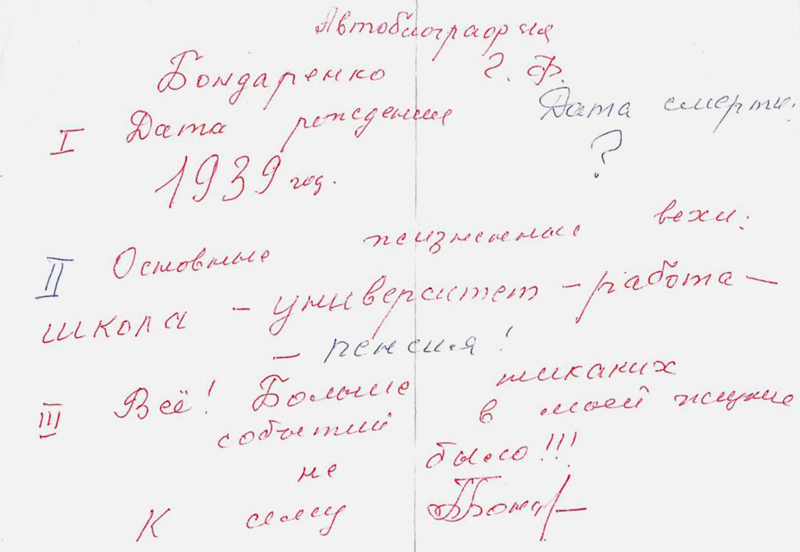 Автобиография
Бондаренко Г. Ф.
I Дата рождения Дата смерти:
1939 год. ?
II Основные жизненные вехи:
школа – университет – работа –
– пенсия!
III Всё! Больше никаких
событий в моей жизни
не было!!!
К сему